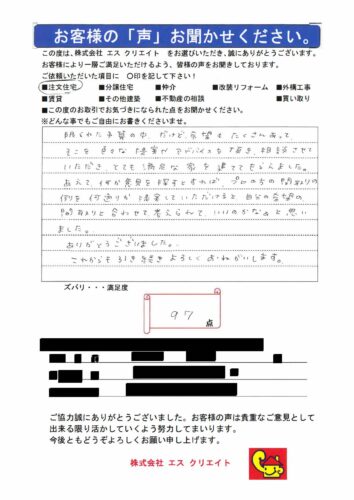 お客様の「声」お聞かせください。
この度は、株式会社 エス クリエイト をお選びいただき、誠にありがとうございます。
お客様により一層ご満足いただけるよう、皆様の声をお聞きしております。
ご依頼いただいた項目に 〇印を記して下さい！
■注文住宅 ■分譲住宅 ■仲介 ■改装リフォーム ■外構工事
■賃貸 ■その他建築 ■不動産の相談 ■買い取り
■この度のお取引でお気づきになられた点をお聞かせください。
※どんな事でもご自由にお書きくださいませ。
限られた予算の中、だけど、希望も たくさんあって
そこを 色々な 提案や アドバイスを 頂き、相談させて
いただき とても 満足な 家を 建てて もらえました。
あえて、何か意見を 探すとすれば プロの方の 間取りの
例を 何通りか 提案して いただけると 自分の希望の
間取りと 合わせて 考えられて いいのかなぁと 思い
ました。
ありがとう ございました。
これからも 引き続き よろしく おねがいします。
ズバリ・・・満足度
97
点
ご協力誠にありがとうございました。お客様の声は貴重なご意見として
出来る限り活かしていくよう努力してまいります。
今後ともどうぞよろしくお願い申し上げます。
株式会社 エス クリエイト